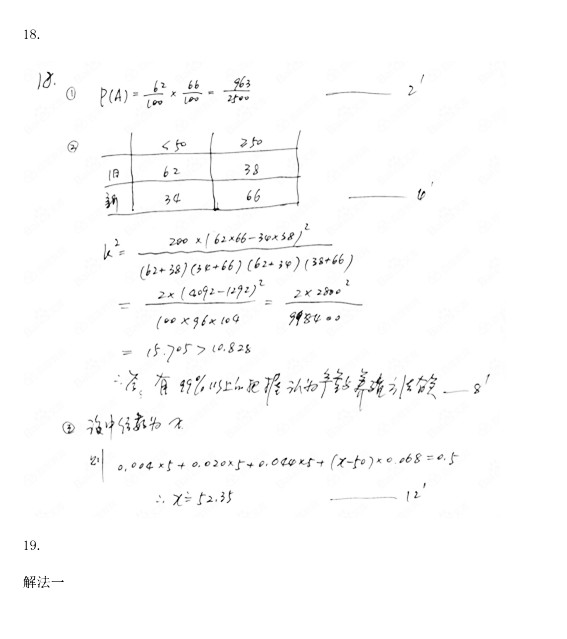 18.
18. ① P(A) = 62/100 × 66/100 = 963/2500 —— 2'
② <50 ≥50
旧 62 38
新 34 66 —— 6'
k² = 200×(62×66-34×38)² / (62+38)(34+66)(62+34)(38+66)
= 2×(4092-1292)² / 100×96×104 = 2×2800² / 998400
= 15.705 > 10.828
∴答: 有99%以上的把握认为产量与养殖方法有关 —— 8'
③ 设中位数为x
则 0.004×5+0.020×5+0.044×5+(x-50)×0.068=0.5
∴ x≐52.35 —— 12'
19.
解法一